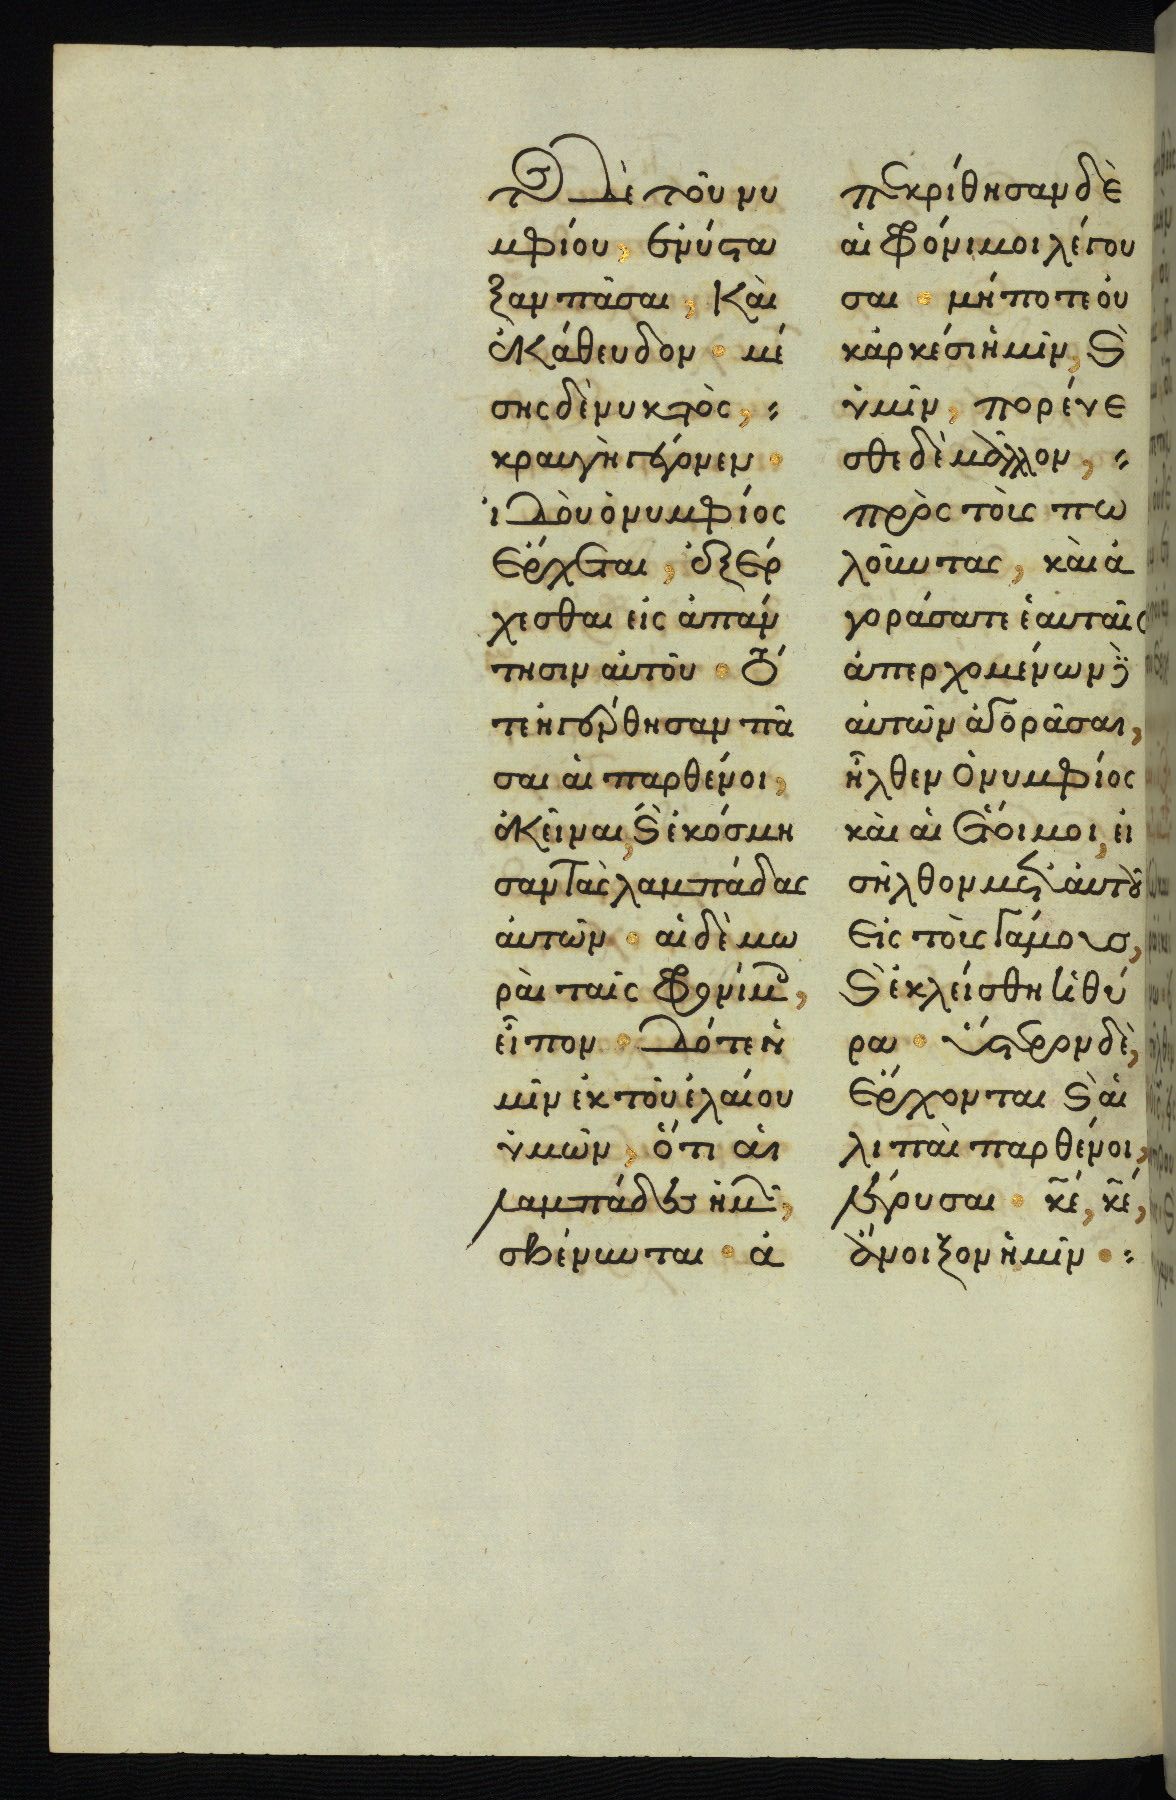 τος δὲ τοῦ νυ
μφίου, ἐνύστα
ξαν πᾶσαι, καὶ
ἐκάθευδον· μέ
σης δὲ νυκτὸς,
κραυγὴ γέγονεν·
ἰδοὺ ὁ νυμφίος
ἔρχεται, ἐξέρ
χεσθαι εἰς ἀπάν
τησιν αὐτοῦ· τό
τε ἠγέρθησαν πᾶ
σαι αἱ παρθένοι,
ἐκεῖναι, καὶ ἐκόσμη
σαν τὰς λαμπάδας
αὐτῶν· αἱ δὲ μω
ραὶ ταῖς φρονίμοις,
εἶπον· δότε ἡ
μῖν ἐκ τοῦ ἐλαίου
ὑμῶν, ὅτι αἱ
λαμπάδες ἡμῶν,
σβέννυνται· ἀ
πεκρίθησαν δὲ
αἱ φρόνιμοι λέγου
σαι· μήποτε οὐ
κ ἀρκέσῃ ἡμῖν, καὶ
ὑμῖν, πορεύε
σθε δὲ μᾶλλον,
πρὸς τοὺς πω
λοῦντας, καὶ ἀ
γοράσατε ἑαυταῖς
ἀπερχομένων δὲ
αὐτῶν ἀγοράσαι,
ἦλθεν ὁ νυμφίος
καὶ αἱ ἕτοιμοι, εἰ
σῆλθον μετ' αὐτοῦ
εἰς τοὺς γάμους,
καὶ ἐκλείσθη ἡ θύ
ρα· ὕστερον δὲ,
ἔρχονται καὶ αἱ
λιπαὶ παρθένοι,
λέγουσαι· κε, κε,
ἄνοιξον ἡμῖν·